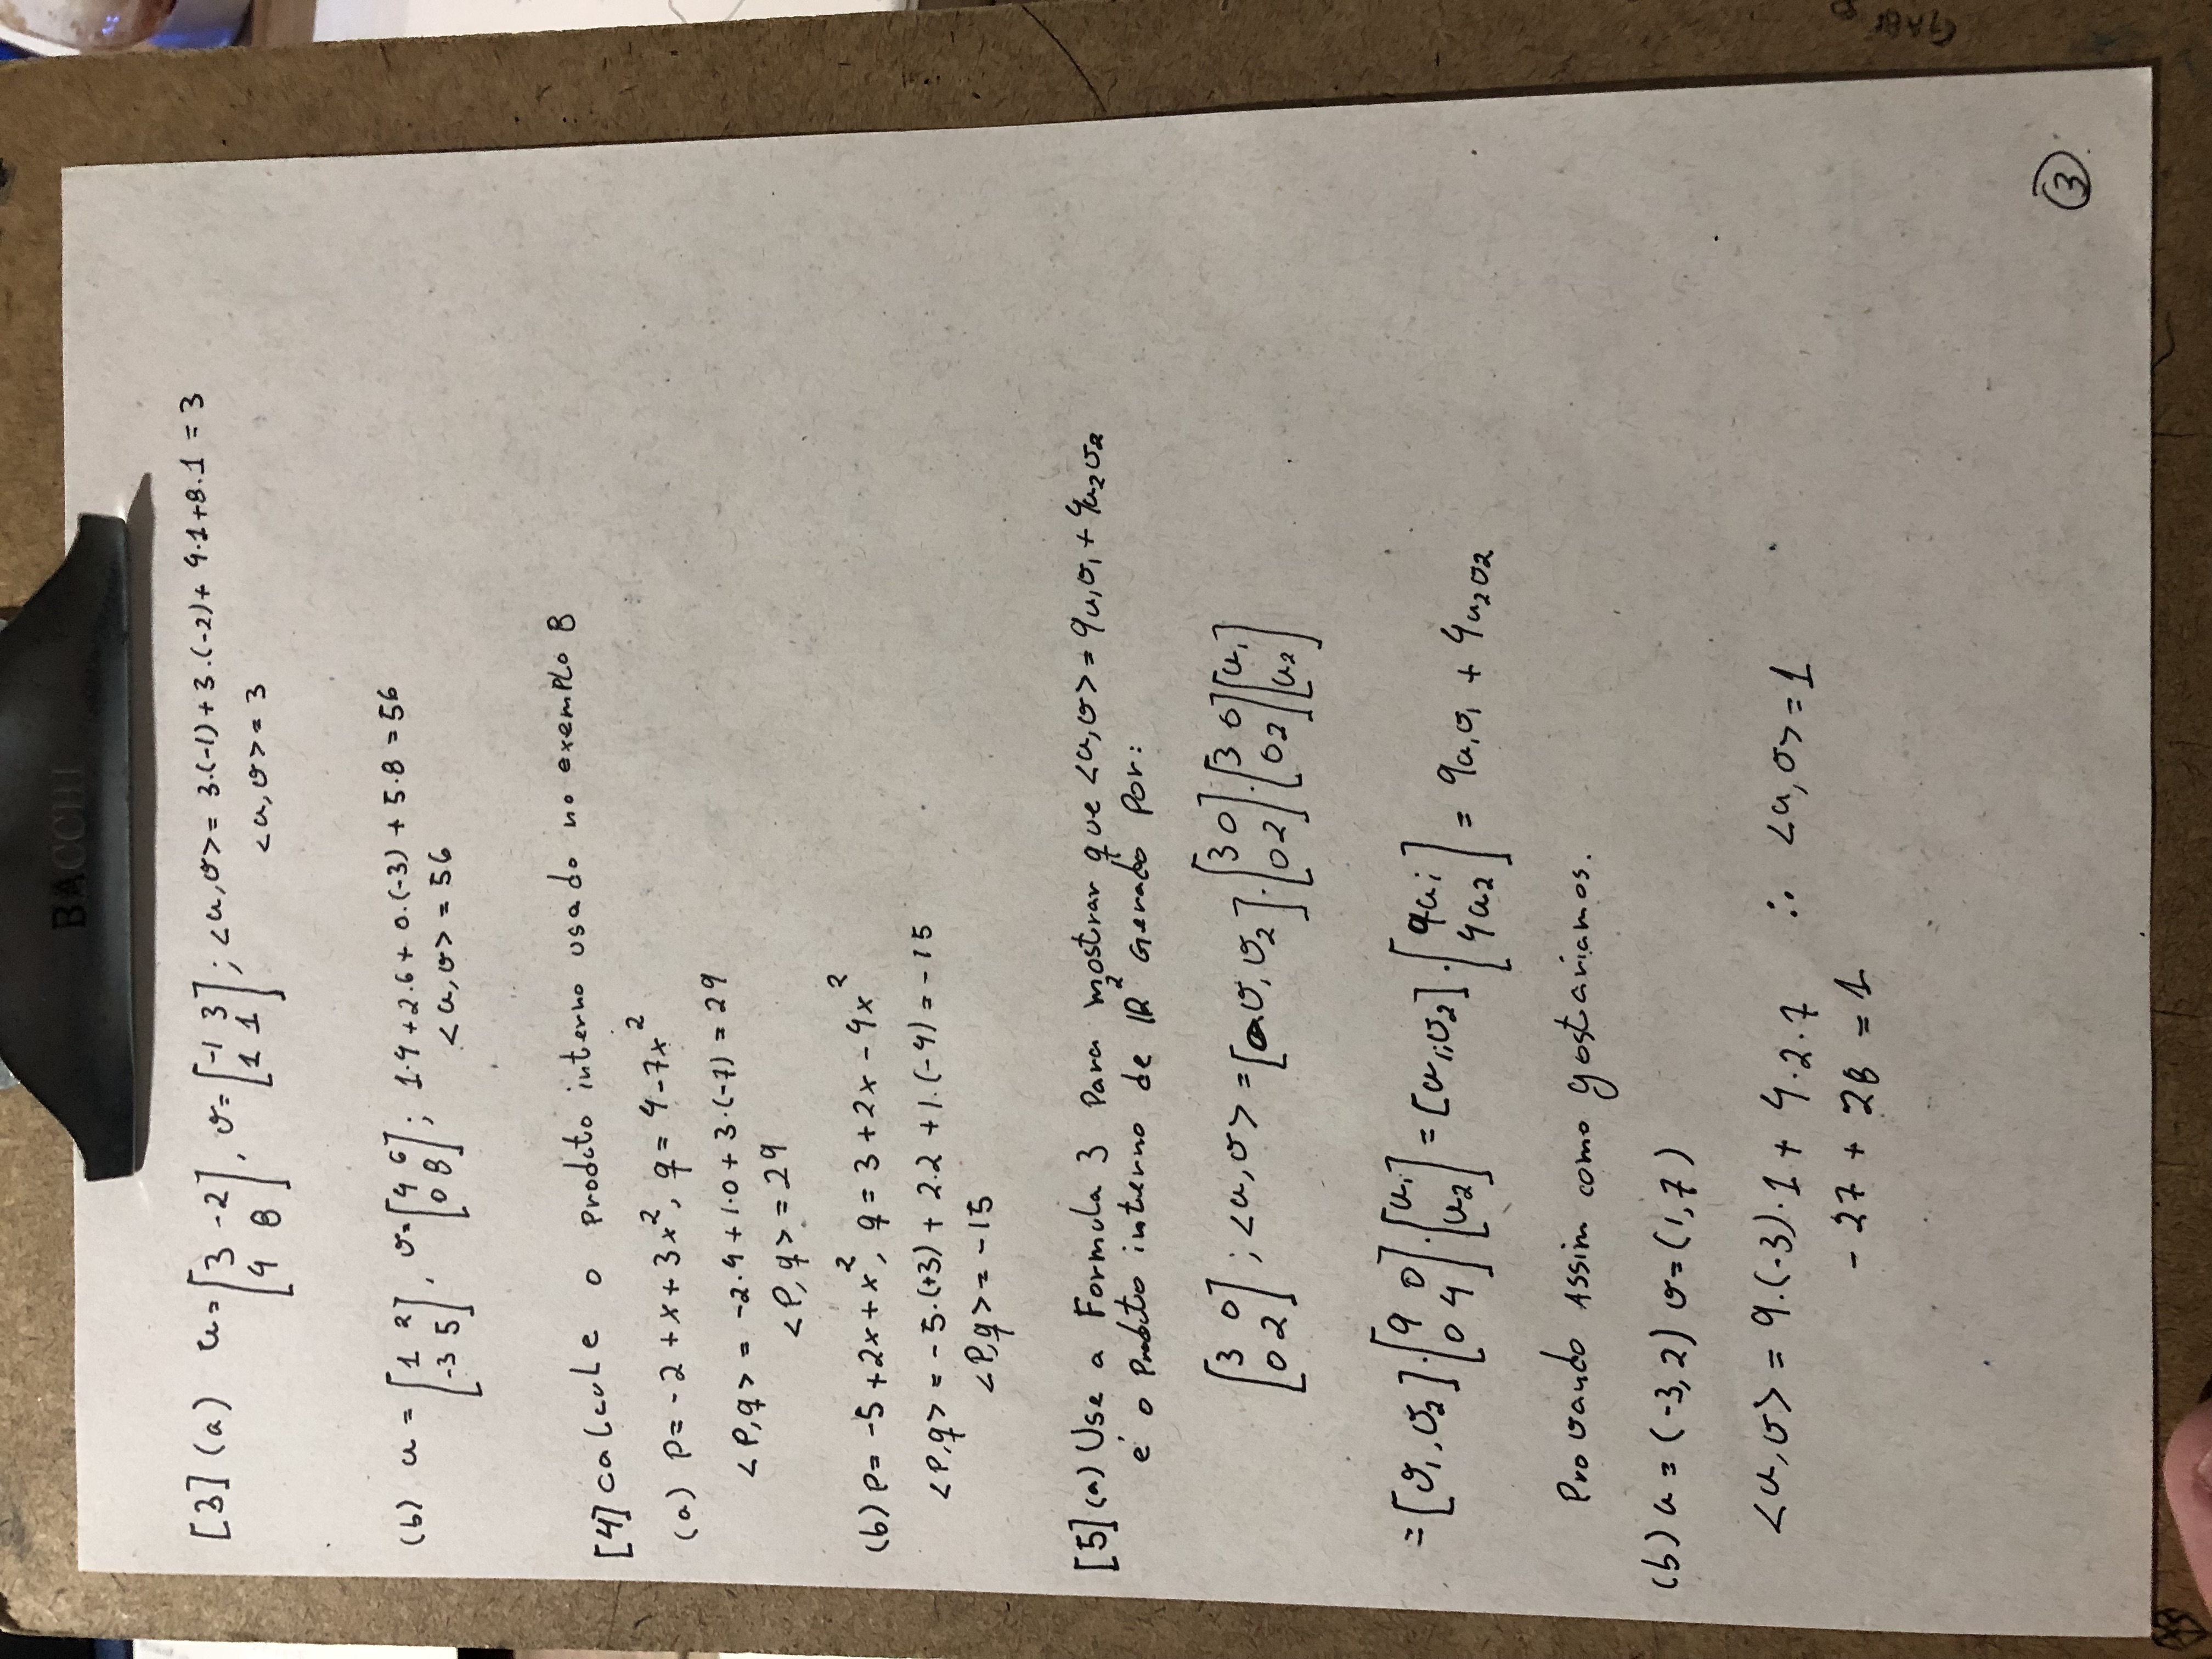 BACCHI
[3] (a) u = [3 -2 / 4 8], v = [-1 3 / 1 1]; <u,v> = 3.(-1) + 3.(-2) + 4.1 + 8.1 = 3
<u,v> = 3
(b) u = [1 2 / -3 5], v = [4 6 / 0 8]; 1.4 + 2.6 + 0.(-3) + 5.8 = 56
<u,v> = 56
[4] calcule o Prodcto interno usado no exemplo 8
(a) P = -2 + x + 3x², q = 4 - 7x²
<P,q> = -2.4 + 1.0 + 3.(-7) = 29
<P,q> = 29
(b) P = -5 + 2x + x², q = 3 + 2x - 4x²
<P,q> = -5.(+3) + 2.2 + 1.(-4) = -15
<P,q> = -15
[5] (a) Use a Formula 3 Para mostrar que <u,v> = 9u₁v₁ + 4u₂v₂
é o Prodcto interno de IR² Gerado Por:
[3 0 / 0 2]; <u,v> = [v, v₂].[3 0 / 0 2].[3 0 / 0 2][u₁ / u₂]
= [v₁, v₂].[9 0 / 0 4].[u₁ / u₂] = [u₁, v₂].[9u₁ / 4u₂] = 9u₁v₁ + 4u₂v₂
Provando Assim como gostariamos.
(b) u = (-3, 2) v = (1, 7)
<u,v> = 9.(-3).1 + 4.2.7 ∴ <u,v> = 1
-27 + 28 = 1
3